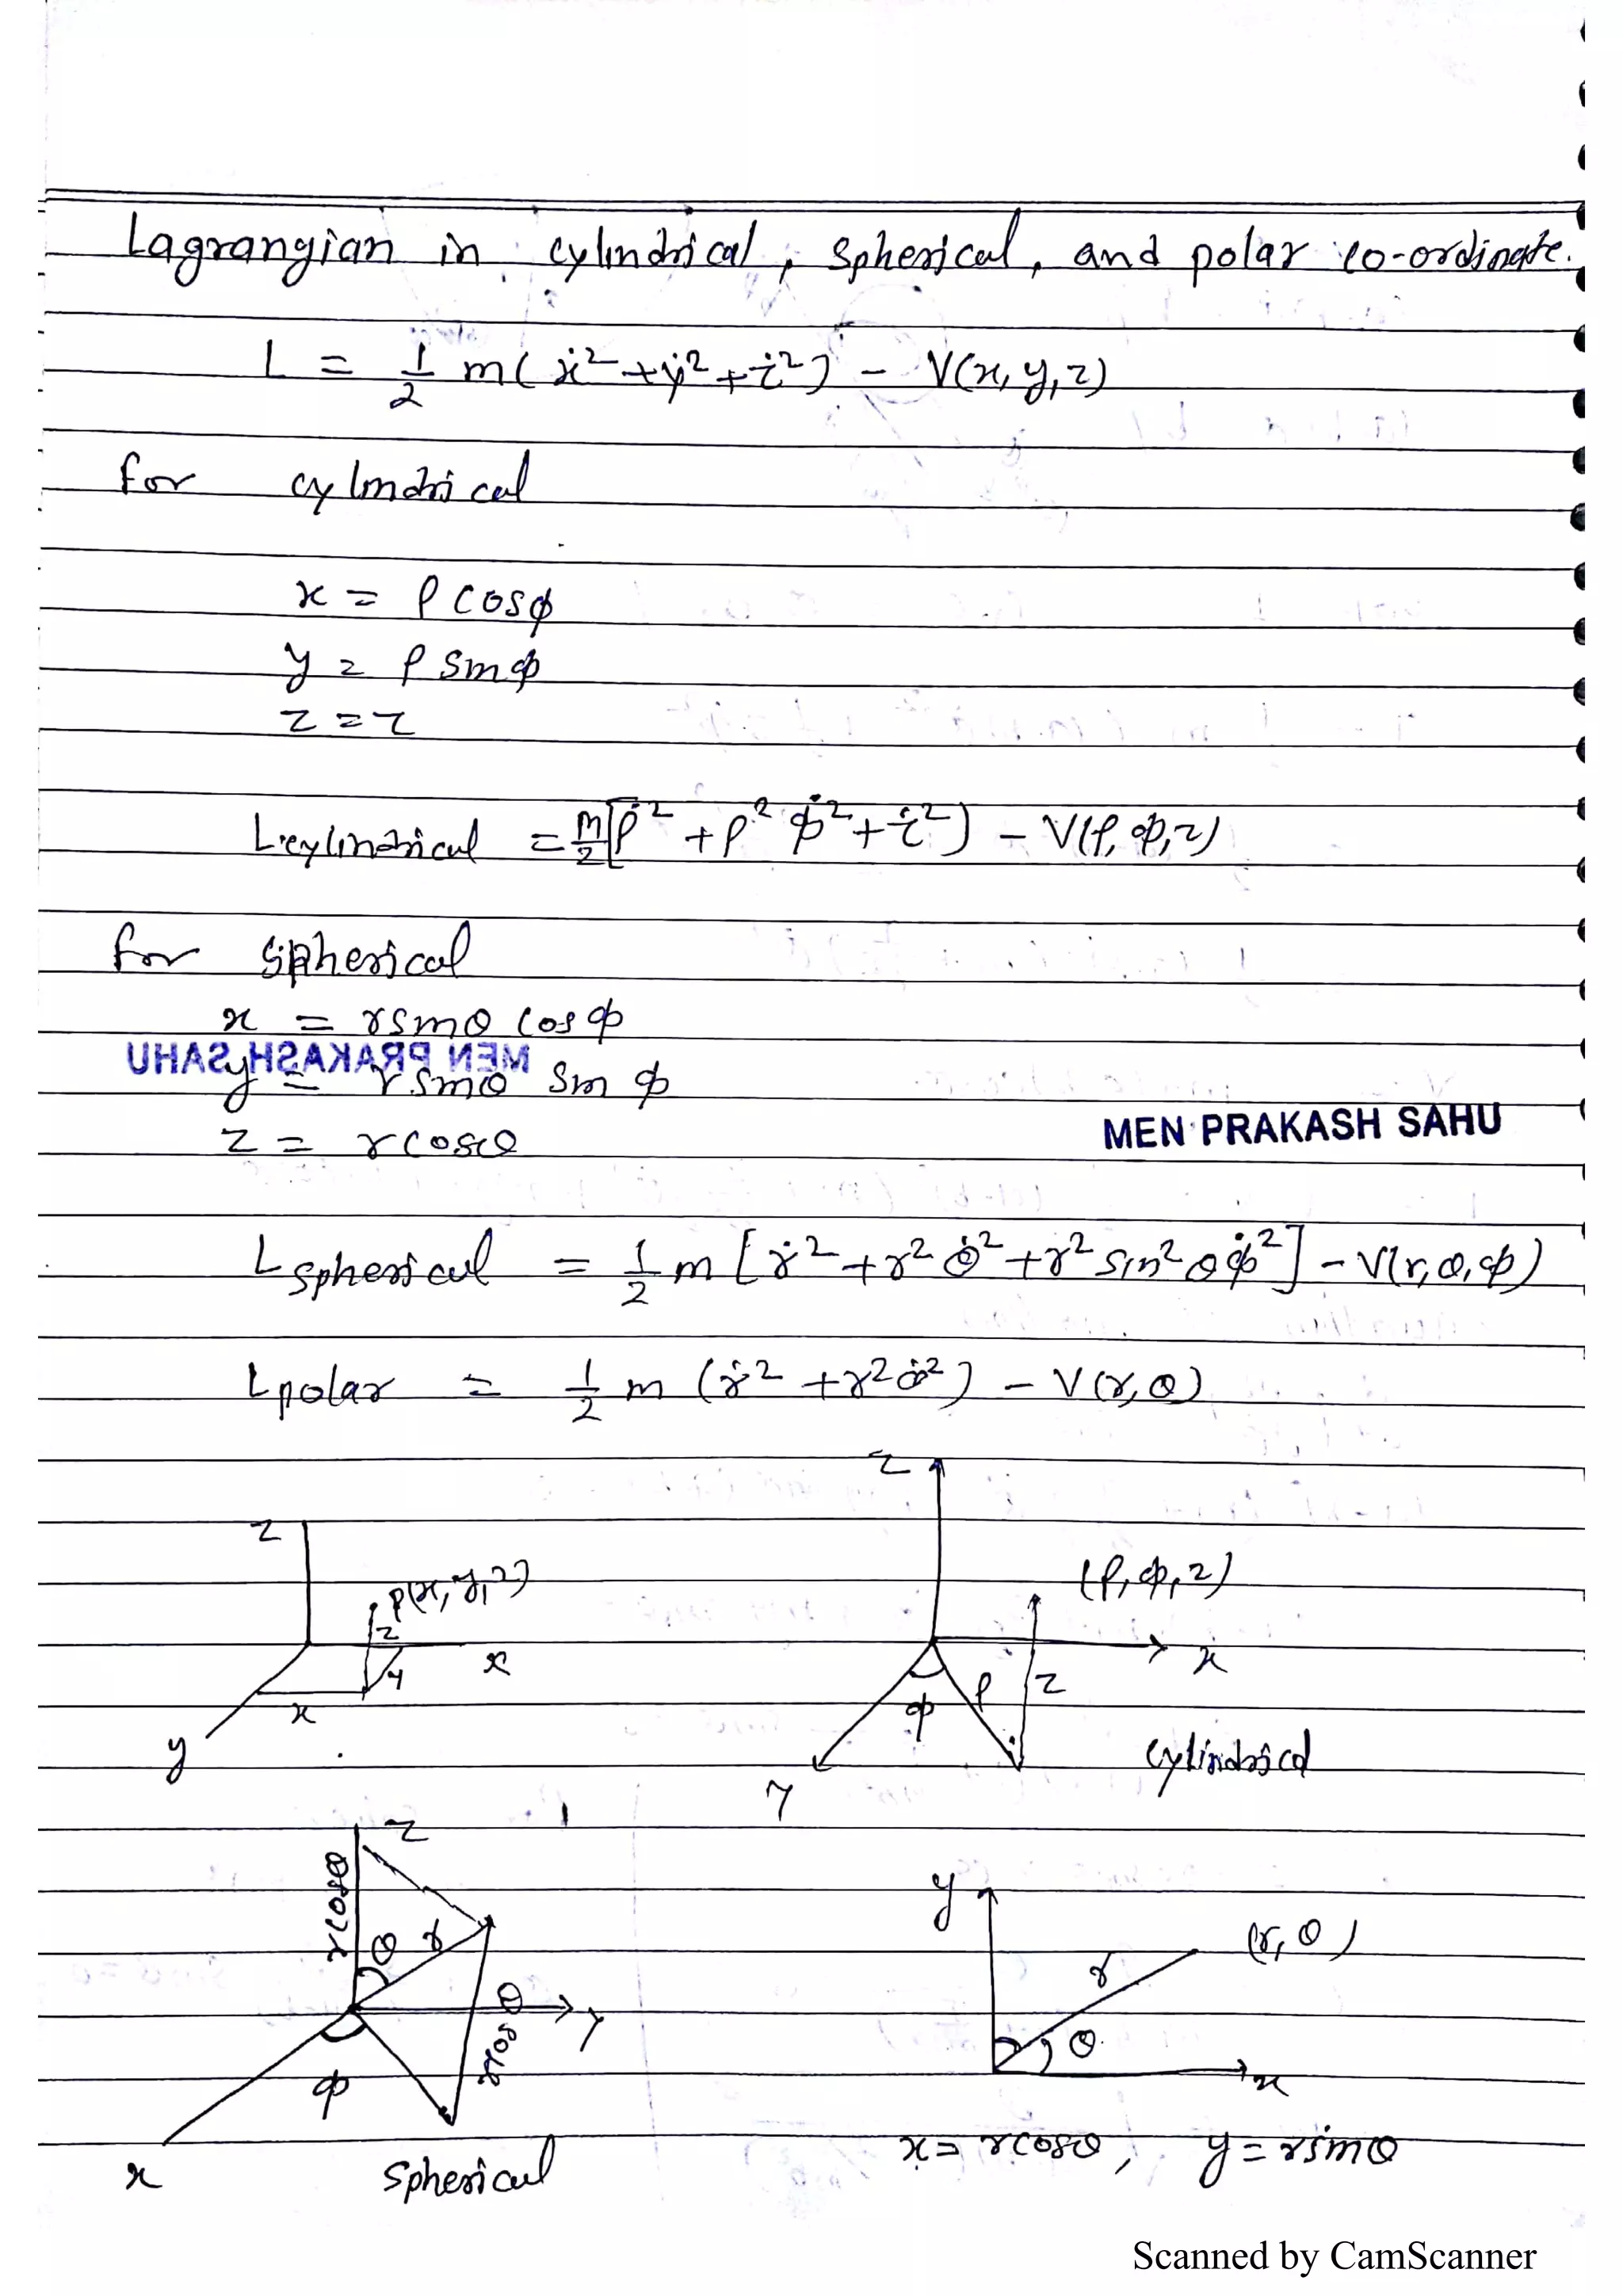 Lagrangian in cylindrical, spherical, and polar co-ordinate.
L = 1/2 m(ẋ² + ẏ² + ż²) - V(x, y, z)
for cylindrical
x = ρ cosφ
y = ρ sinφ
z = z
Lcylindrical = m/2 [ρ̇² + ρ² φ̇² + ż²) - V(ρ, φ, z)
for spherical
x = r sinθ cos φ
MEN PRAKASH SAHU
y = r sinθ sin φ
MEN PRAKASH SAHU
z = r cosθ
L spherical = 1/2 m [ṙ² + r² θ̇² + r² sin² θ φ̇²] - V(r, θ, φ)
L polar = 1/2 m (ṙ² + r² θ̇²) - V(r, θ)
z
z
P(x, y, z)
(ρ, φ, z)
z
x
y
x
x
φ
ρ
z
y
cylindrical
y
z
r cosθ
θ
r
θ
y
r cos
φ
x
spherical
y
(r, θ)
r
θ
x
x = r cosθ, y = r sinθ
Scanned by CamScanner